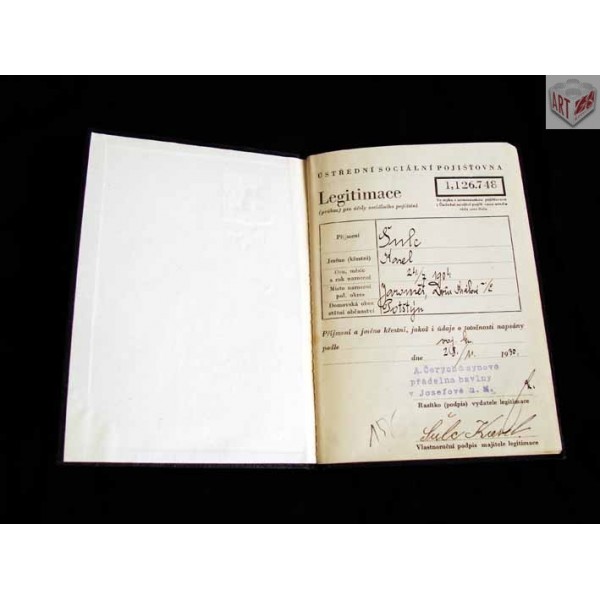 ART
ÚSTŘEDNÍ SOCIÁLNÍ POJIŠŤOVNA
Legitimace
1,126.748
(průkaz) pro účely sociálního pojištění
Příjmení
Šulc
Jméno (křestní)
Karel
Den, měsíc
a rok narození
24/7 1904
Místo narození
pol. okres
Jaroměř, Dvůr Králové n/L
Domovská obec
státní občanství
Potštýn
Příjmení a jméno křestní, jakož i údaje o
napsány
podle
dne
11. 1930.
A. Čerych synové
přádelna bavlny
v Josefově n. M.
Razítko (podpis) vydatele legitimace
Šulc Karel
Vlastnoruční podpis majitele legitimace